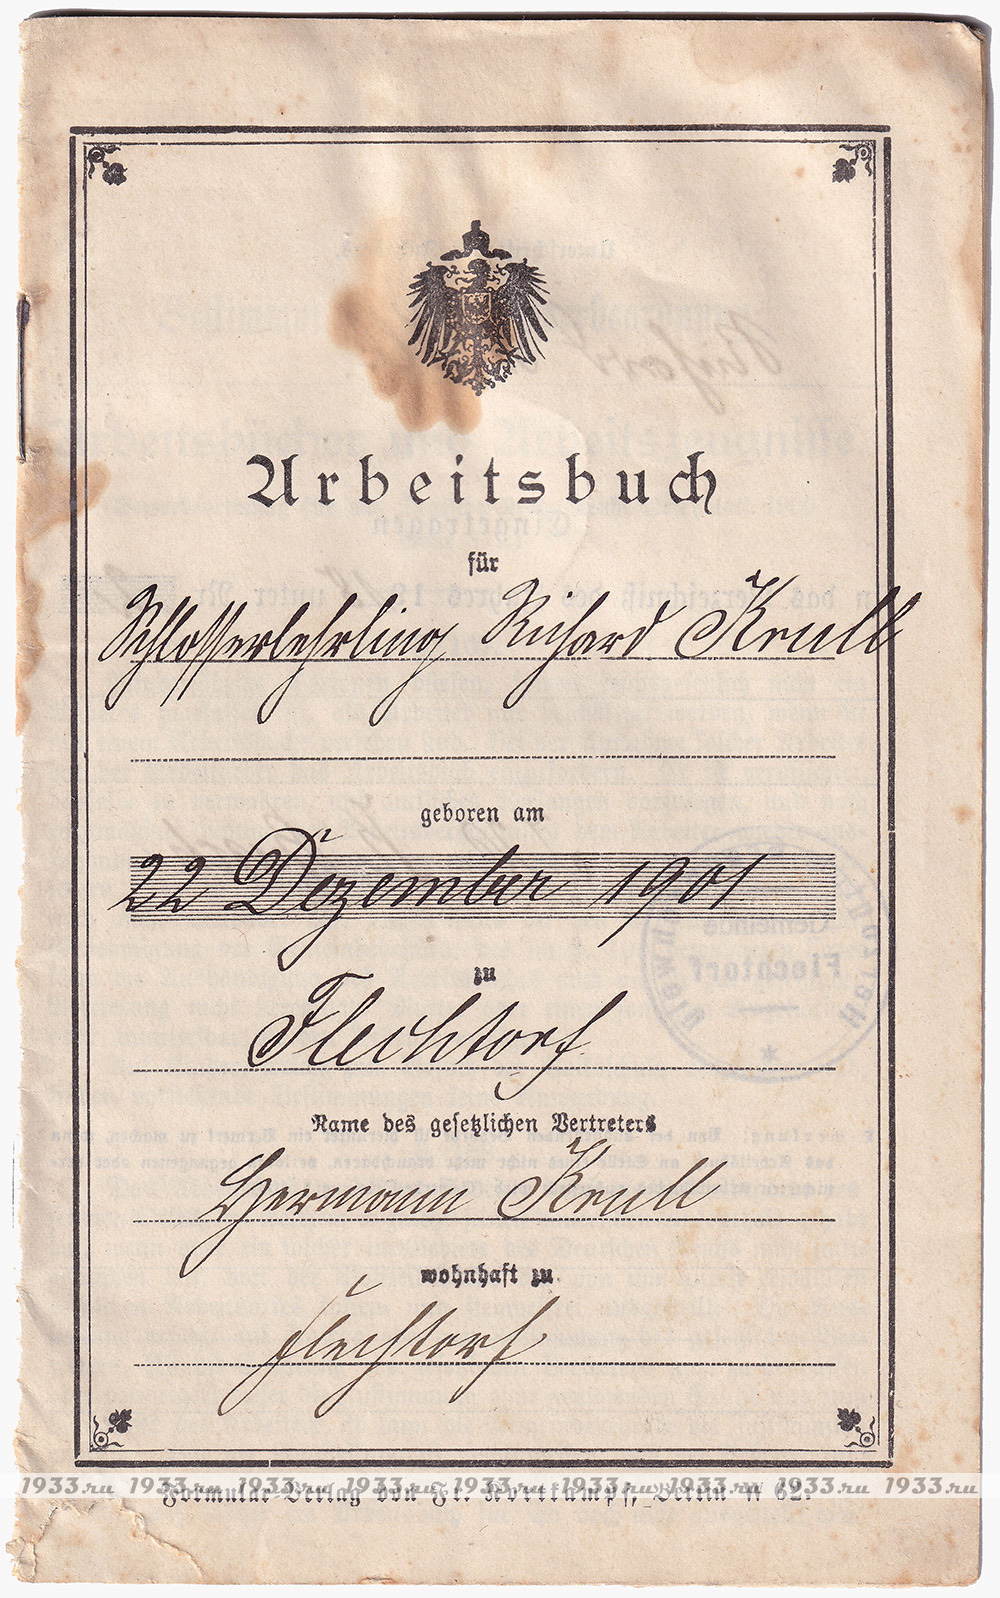 Arbeitsbuch
für
Schlosserlehrling Richard Krull
geboren am
22 Dezember 1901
zu
Flechtorf
Name des gesetzlichen Vertreters
Hermann Krull
wohnhaft zu
Flechtorf
1933.ru 1933.ru 1933.ru 1933.ru 1933.ru 1933.ru 1933.ru 1933.ru 1933.ru
Formular-Verlag von Fr. Kortkampf, Berlin W 62.
Gemeinde
Flechtorf